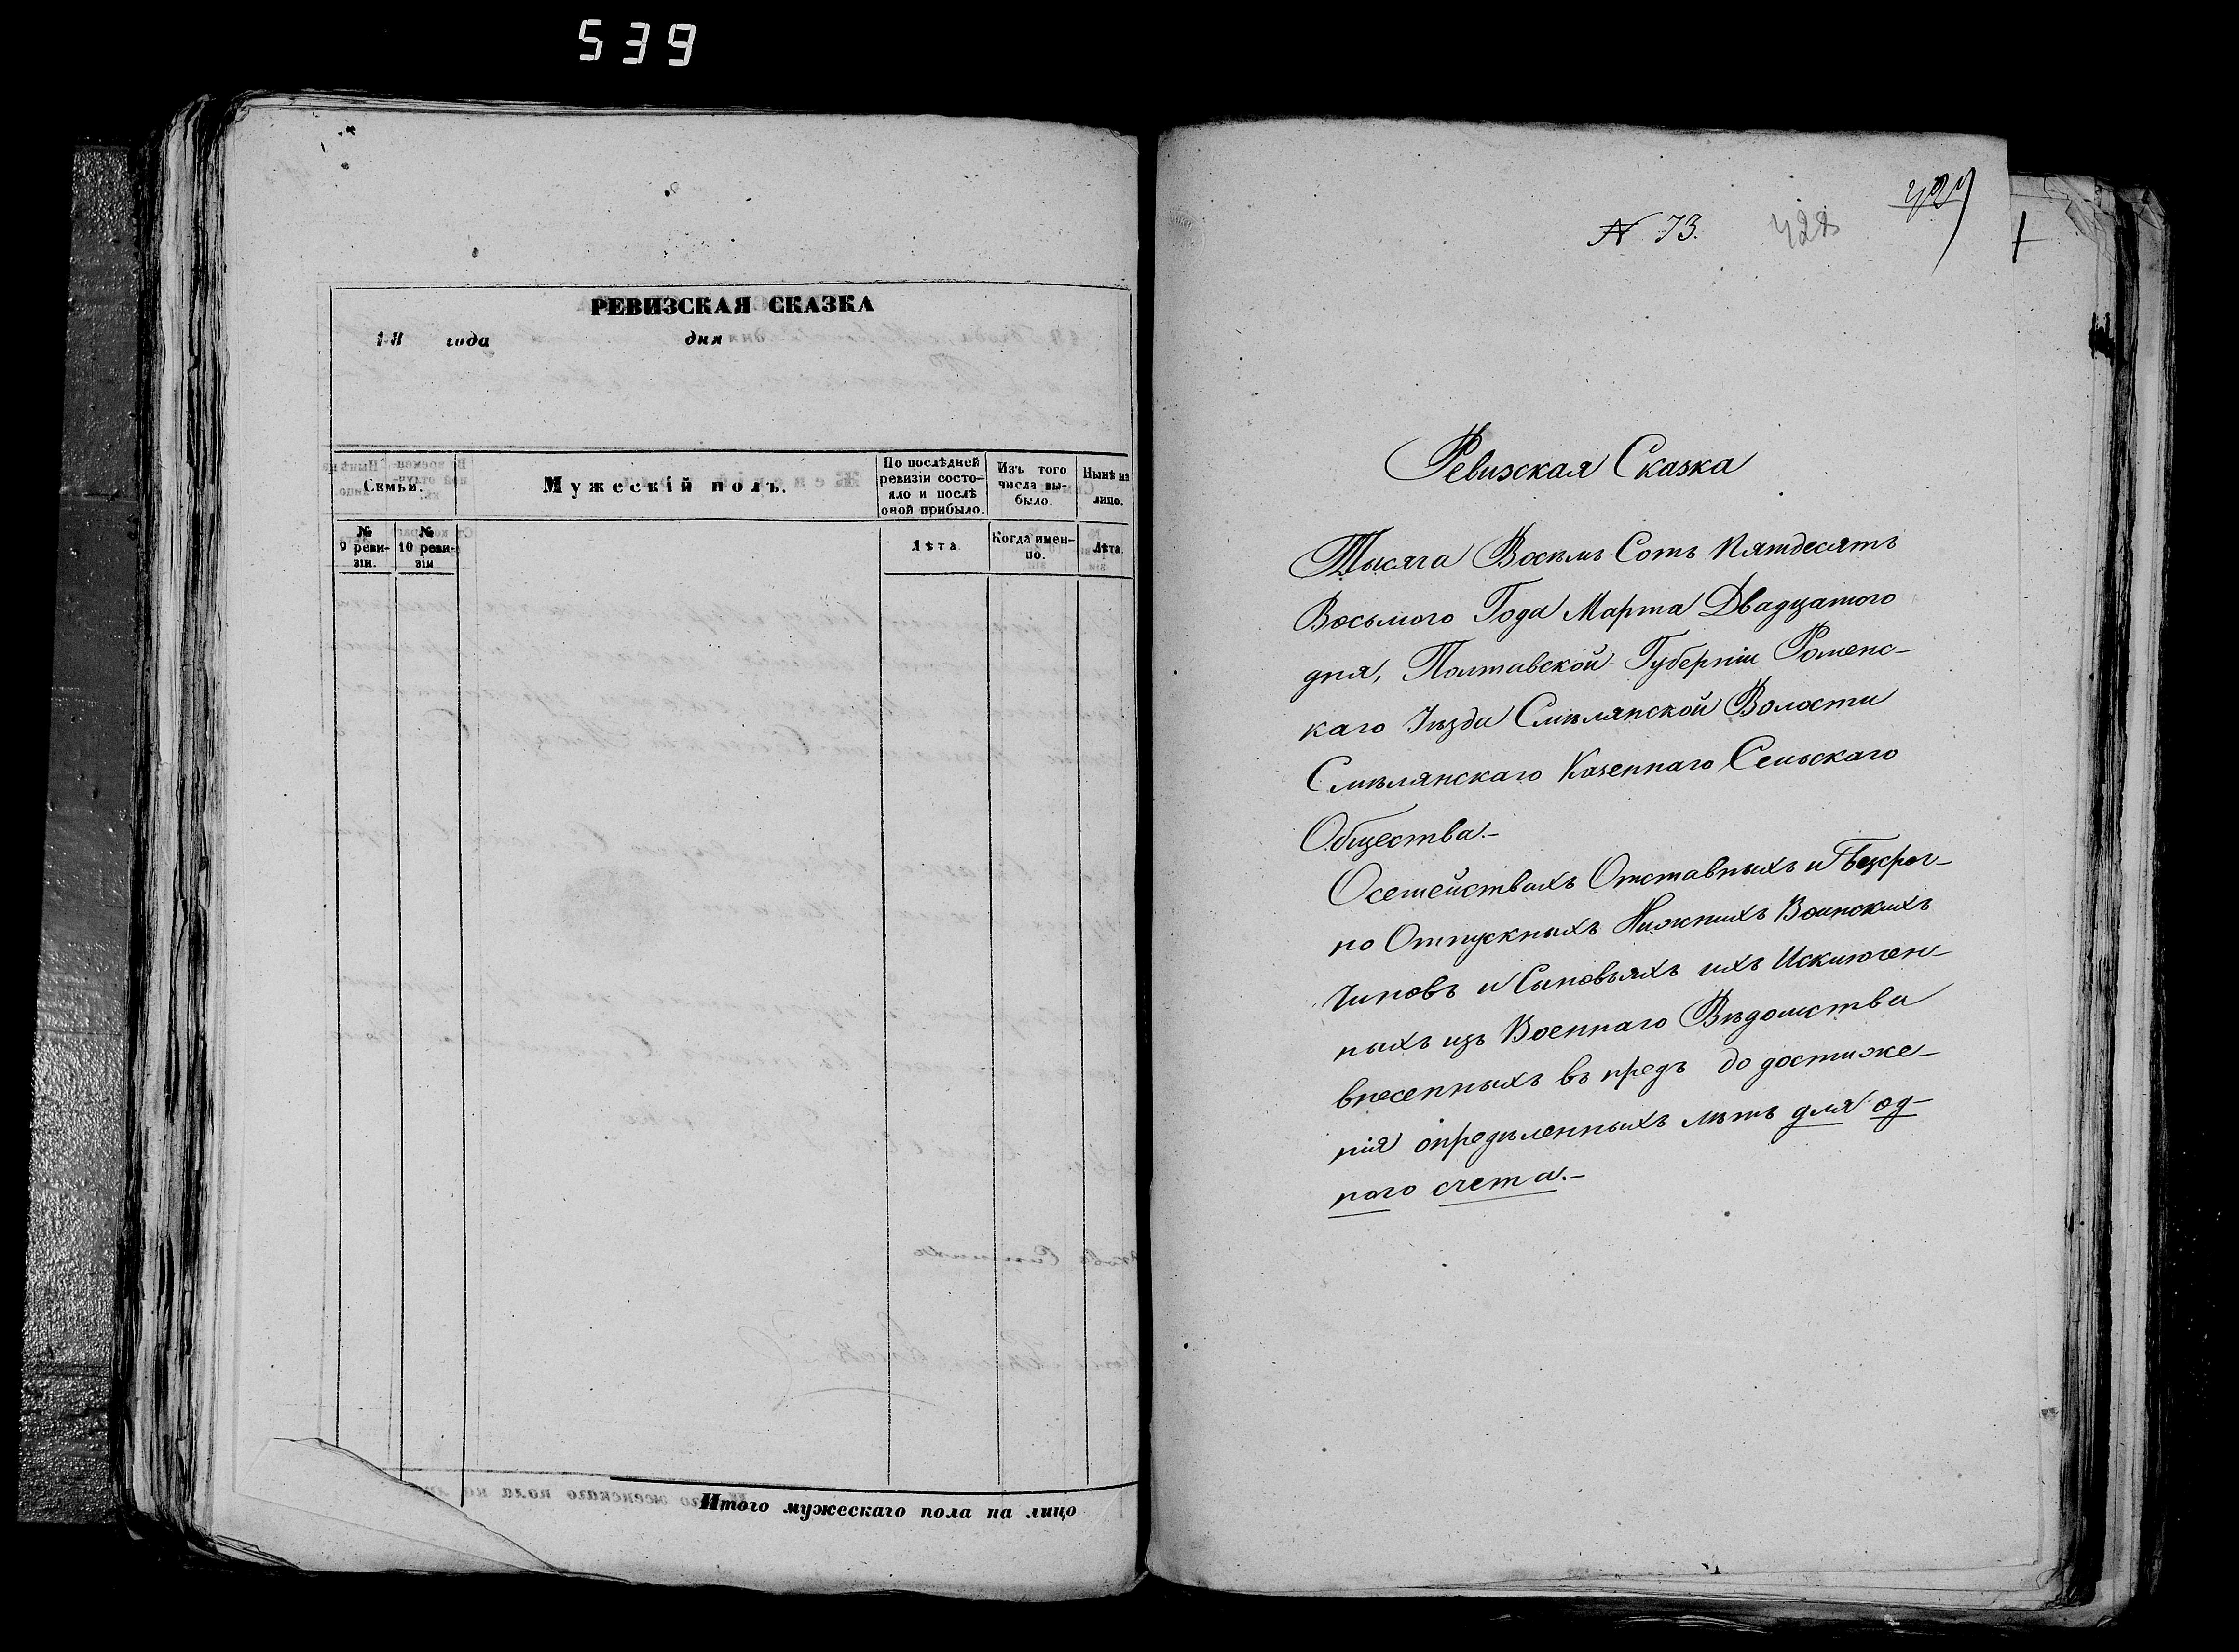 539
РЕВИЗСКАЯ СКАЗКА
18 года дня
Семьи.
Мужескій полъ.
По послѣдней ревизіи состо-
яло и послѣ оной прибыло.
Изъ того числа вы-
было.
Нынѣ на лицо.
№ 9 реви-
зіи.
№ 10 реви-
зіи
Лѣта
Когда имен-
но.
Лѣта.
Итого мужескаго пола на лицо
№ 73.
428
Ревизская Сказка
Тысяча Восемь Сотъ Пятдесятъ
Восьмого Года Марта Двадцатого
дня, Полтавской Губерніи Роменс-
каго Уѣзда Смѣлянской Волости
Смѣлянскаго Казеннаго Сельскаго
Общества.-
Осемействахъ Отставныхъ и Безсроч-
но Отпускныхъ Нижнихъ Воинскихъ
Чиновъ и Сыновьяхъ ихъ Исключен-
ныхъ изъ Военнаго Вѣдомства
внесенныхъ въ предъ до достиже-
нія опредѣленныхъ лѣтъ для од-
ного счета.-